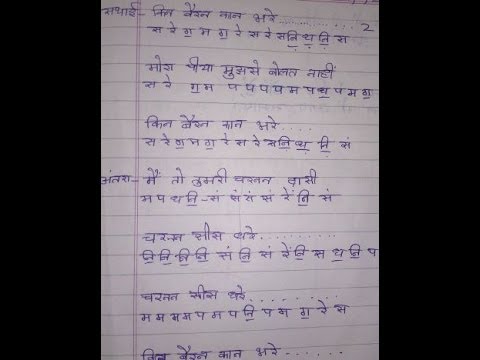 स्थाई- किन बैरन कान भरे............
2
स रे ग॒ म ग॒ रे स रे स नि॒ ध॒ नि॒ स
मोरा पीया मुझसे बोलत नाहीं
स रे ग॒ म प प प प म प ध॒ प म ग॒
किन बैरन कान भरे....
स रे ग॒ म ग॒ रे स रे स नि॒ ध॒ नि॒ सं
अंतरा- मैं तो तुमरी चरनन दासी
म प ध॒ नि॒-सं सं सं सं रें नि॒ सं
चरनन सीस धरे..........
नि॒ नि॒ नि॒ नि॒ सं नि॒ सं रें नि॒ स ध॒ नि॒ प
चरनन सीस धरे..........
म म म म प म प नि॒ प म ग॒ रे स
किन बैरन कान भरे.........